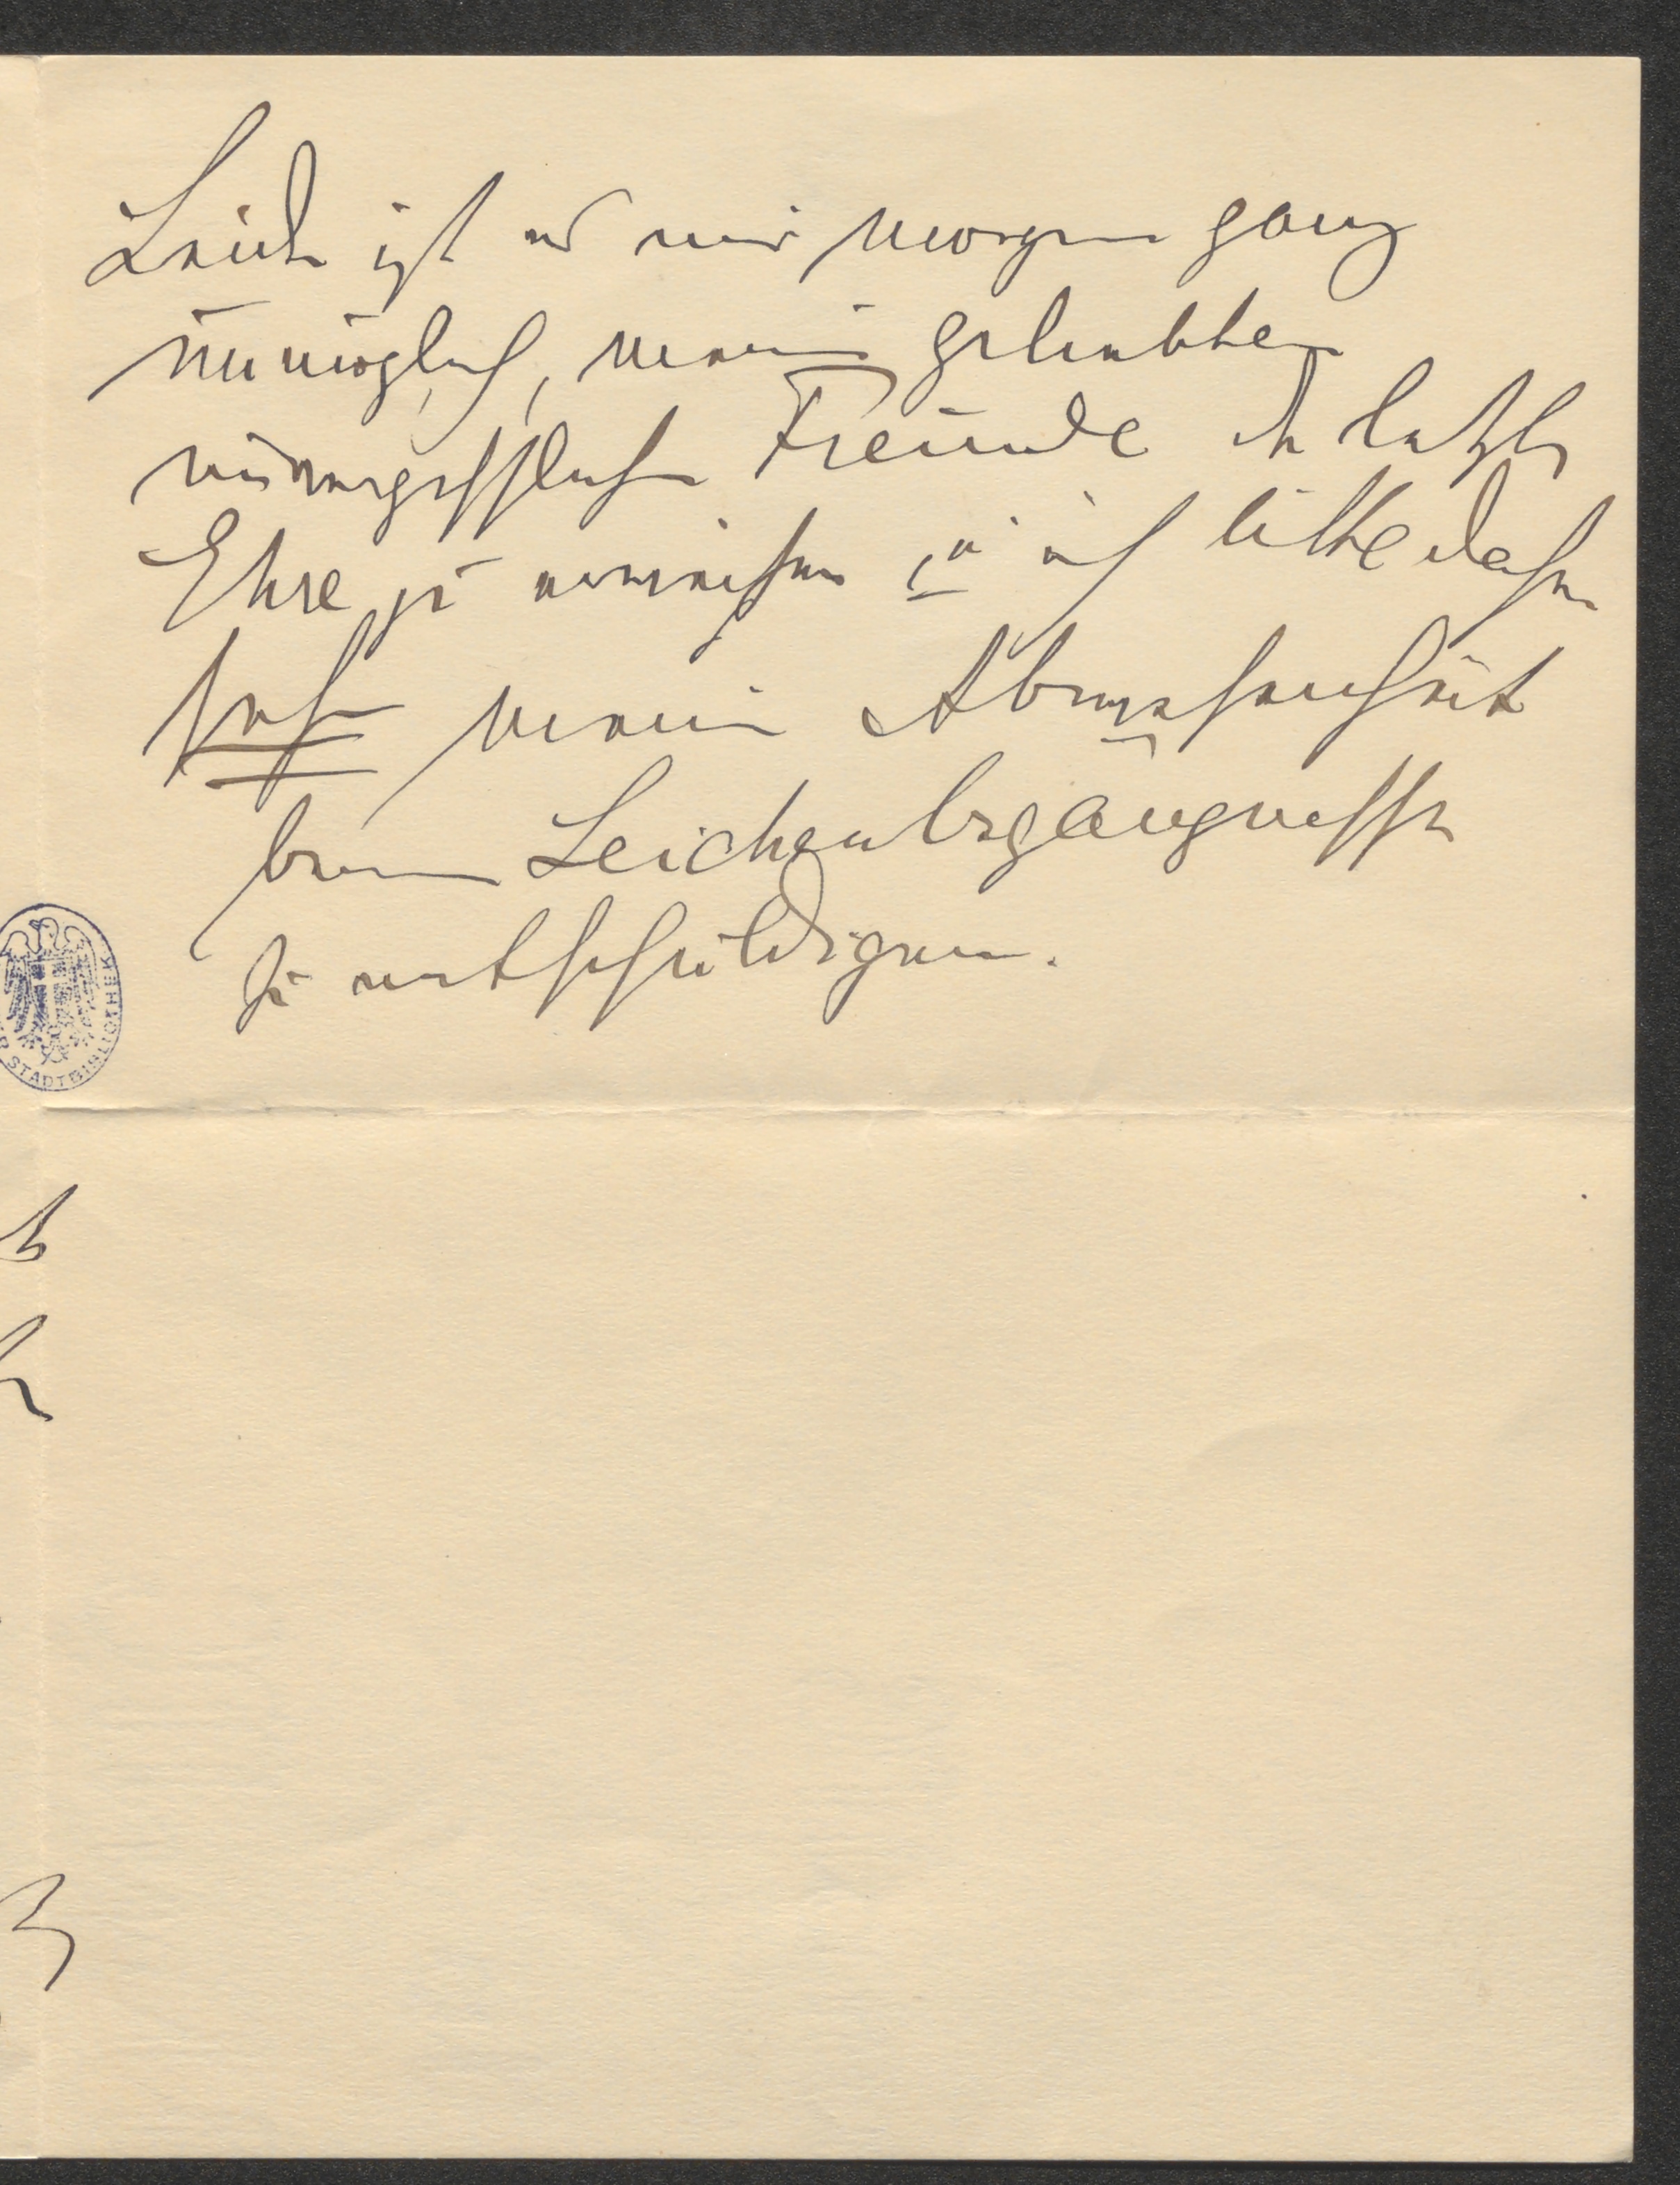 Leider ist es mir morgen ganz
unmöglich, meinem geliebten
unvergesslichen Freunde die letzte
Ehre zu erweisen, u ich bitte daher
sehr meine Abwesenheit
beim Leichenbegängnisse
zu entschuldigen.
STADTBIBLIOTHEK